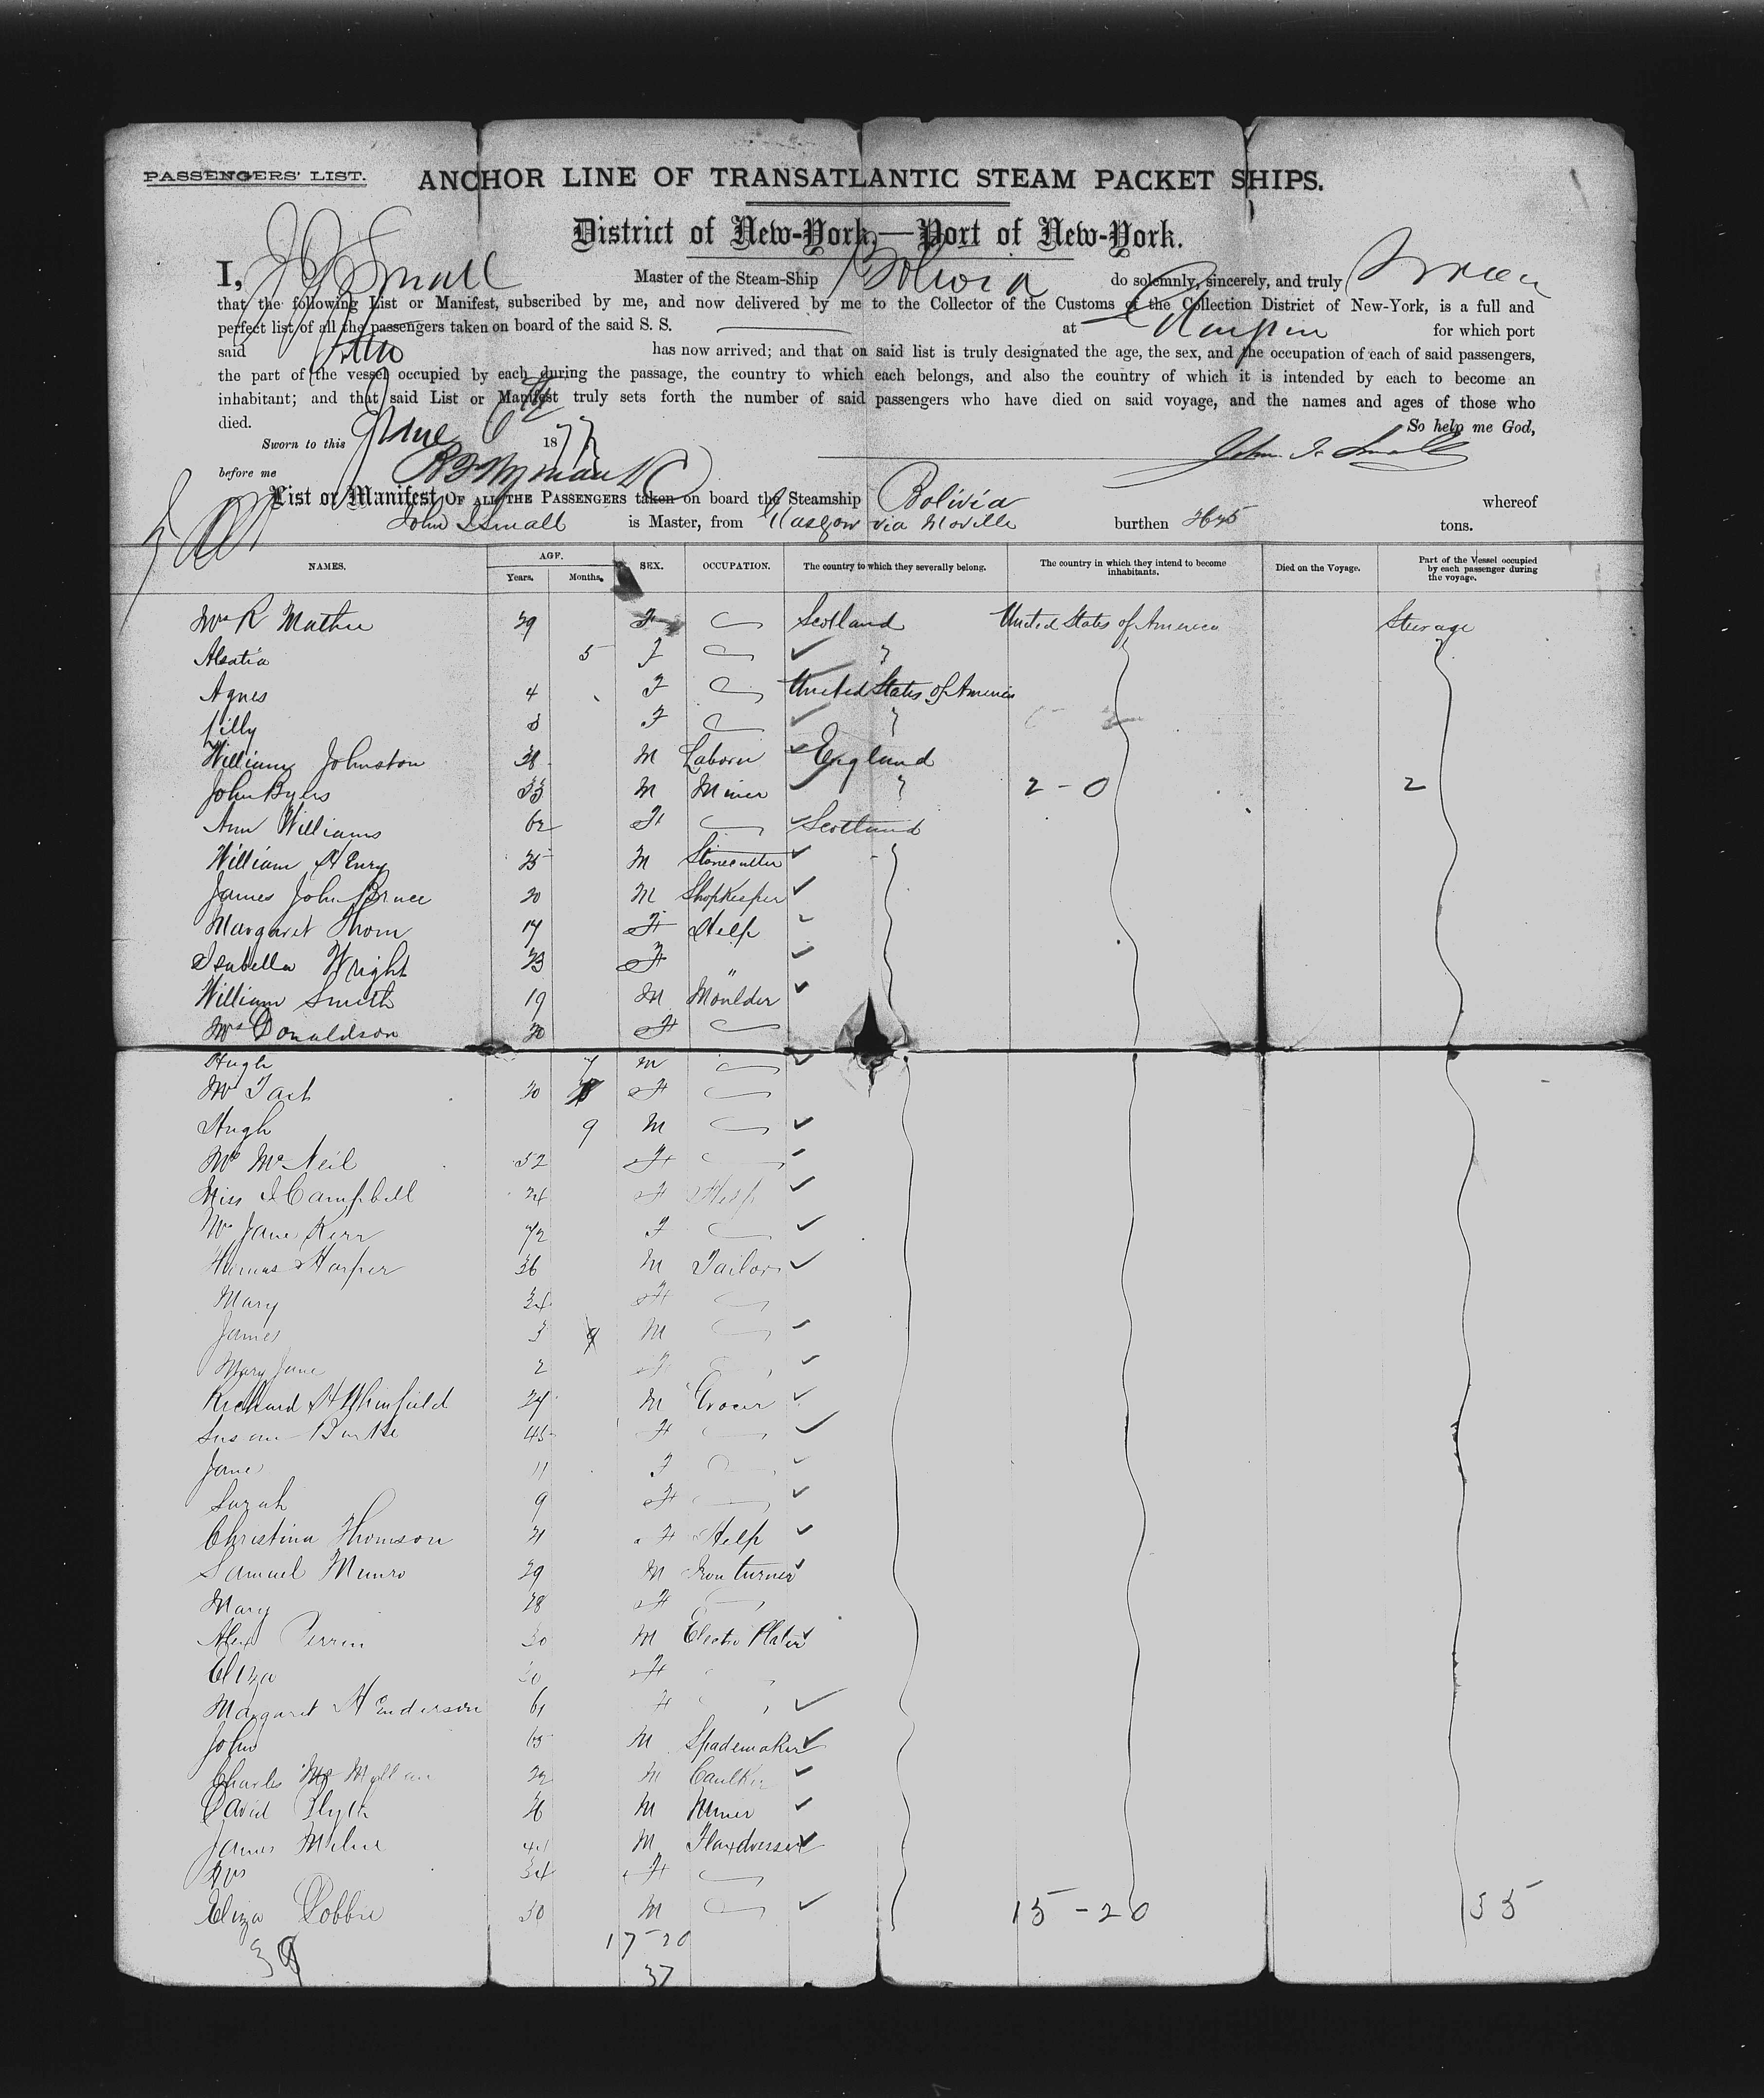 PASSENGERS' LIST.
ANCHOR LINE OF TRANSATLANTIC STEAM PACKET SHIPS.
District of New-York,—Port of New-York.
I, Small Master of the Steam-Ship Bolivia do solemnly, sincerely, and truly Swear
that the following List or Manifest, subscribed by me, and now delivered by me to the Collector of the Customs of the Collection District of New-York, is a full and
perfect list of all the passengers taken on board of the said S. S. at for which port
said has now arrived; and that on said list is truly designated the age, the sex, and the occupation of each of said passengers,
the part of the vessel occupied by each during the passage, the country to which each belongs, and also the country of which it is intended by each to become an
inhabitant; and that said List or Manifest truly sets forth the number of said passengers who have died on said voyage, and the names and ages of those who
died. So help me God,
Sworn to this June 6th 1877
before me John Small
List or Manifest OF ALL THE PASSENGERS taken on board the Steamship Bolivia whereof
John Small is Master, from Glasgow via Moville burthen tons.
NAMES. AGE. SEX. OCCUPATION. The country to which they severally belong. The country in which they intend to become inhabitants. Died on the Voyage. Part of the Vessel occupied by each passenger during the voyage.
Years. Months.
Mrs R Mathie 29 F Scotland United States of America Steerage
5 F "
Agnes 4 F United States of America
Lilly 3 F "
William Johnston 38 M England
John Byers 33 M Miner " 2-0 2
Ann Williams 62 F Scotland
William Henry 25 M Stonecutter
James John Bruce 20 M Shopkeeper
Margaret Thom 17 F Help
Isabella Wright 23 F "
William Smith 19 M Moulder
Mrs Donaldson 30 F
Hugh 7 M
Mrs 20 F
Hugh 9 M
Mrs McNeil 52 F
Miss J Campbell 24 F Help
Mrs Jane Kerr 72 F
Thomas Harper 36 M Tailor
Mary 34 F
James 3 M
Mary Jane 2 F
Richard 24 M Grocer
Susan Burke 45 F
Jane 11 F
Sarah 9 F
Christina Thomson 21 F Help
Samuel Munro 29 M Iron turner
Mary 28 F
Alex Perrin 30 M Electro Plater
Eliza 30 F
Margaret Henderson 61 F
John 65 M Spademaker
Charles 22 M Caulker
David Blyth 26 M Miner
James Milne 41 M Flaxdresser
Mrs 34 F
Eliza Dobbie 30 M 15-20 35
39 17-20
37